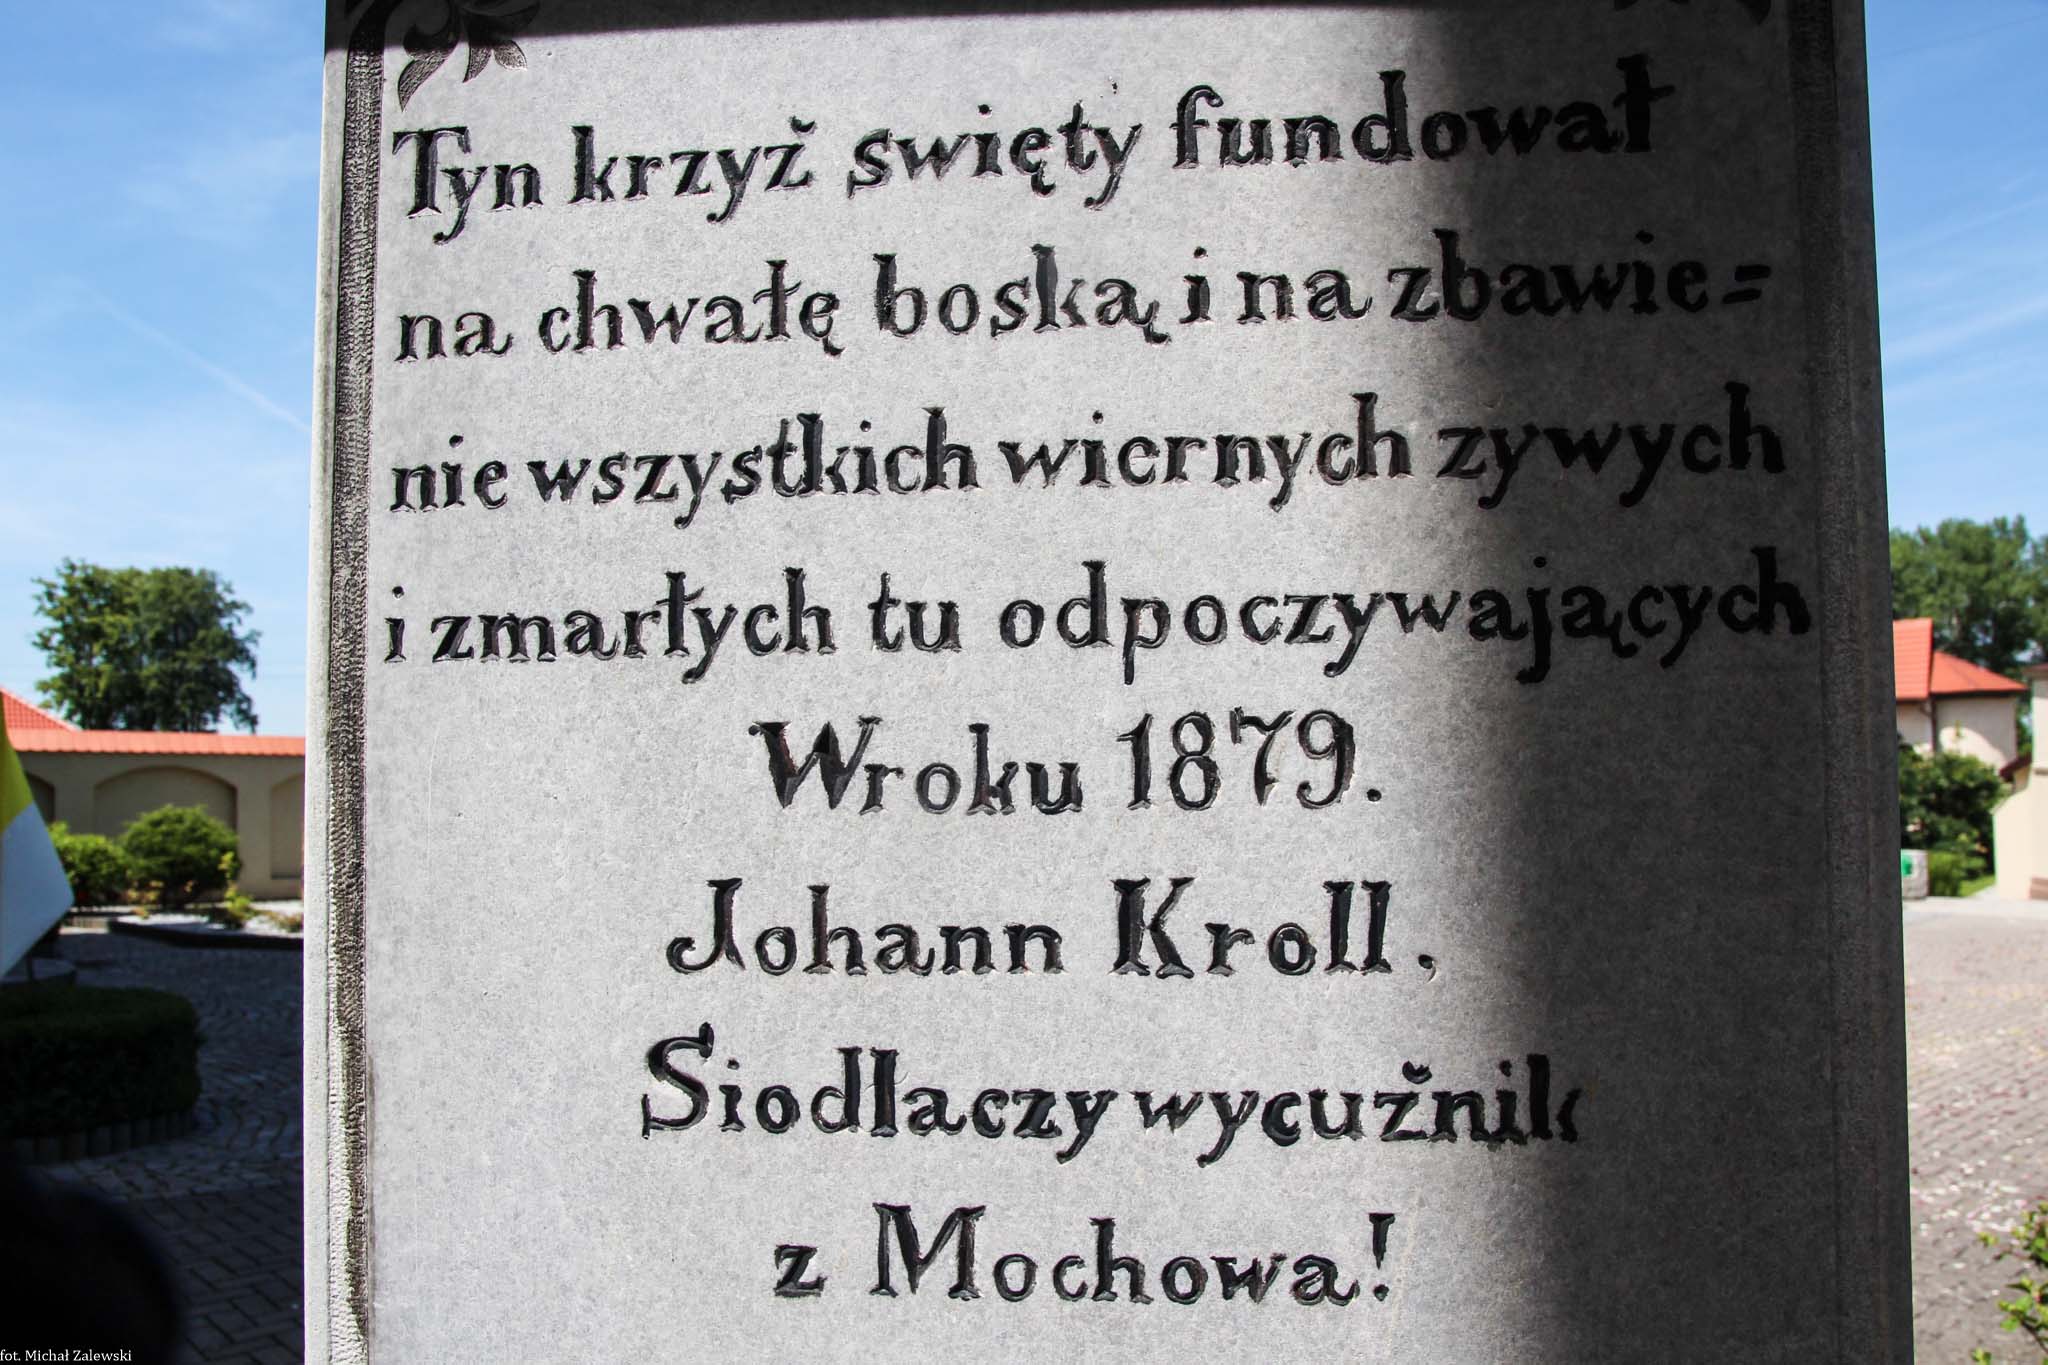 Tyn krzyž swięty fundował
na chwałę boską i na zbawie=
nie wszystkich wiernych zywych
i zmarłych tu odpoczywających
Wroku 1879.
Johann Kroll,
Siodlaczy wycužnik
z Mochowa!
fot. Michał Zalewski